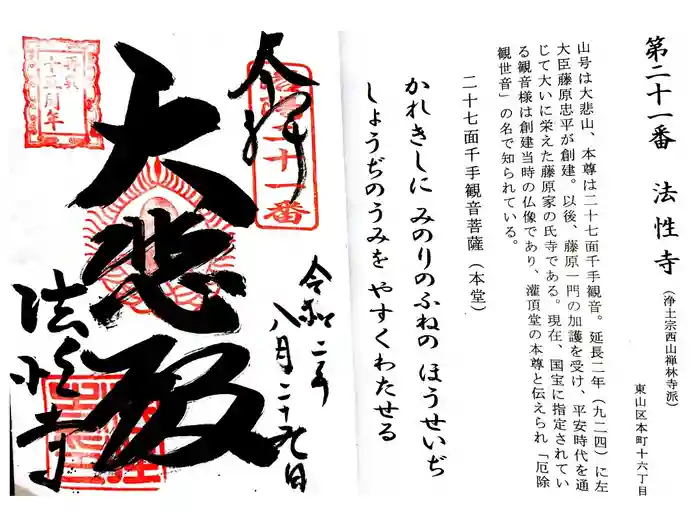 第二十一番 法性寺(浄土宗西山禅林寺派)
東山区本町十六丁目
山号は大悲山、本尊は二十七面千手観音。延長二年(九二四)に左
大臣藤原忠平が創建。以後、藤原一門の加護を受け、平安時代を通
じて大いに栄えた藤原家の氏寺である。現在、国宝に指定されてい
る観音様は創建当時の仏像であり、灌頂堂の本尊と伝えられ「厄除
観世音」の名で知られている。
二十七面千手観音菩薩(本堂)
かれきしに みのりのふねの ほうせいぢ
しょうぢのうみを やすくわたせる
二十一番
奉拝
大悲殿
法性寺
令和二年
八月二十九日